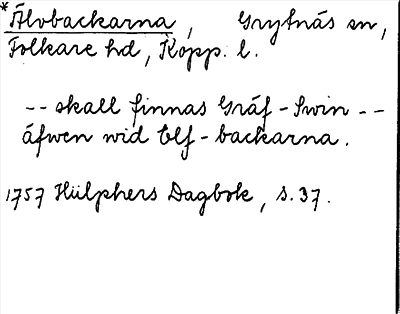 *Älvbackarna, Grytnäs sn,
Folkare hd, Kopp. l.
-- skall finnas Gräf-Swin --
äfwen wid Elf-backarna.
1757 Hülphers Dagbok, s. 37.